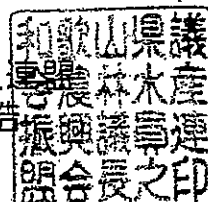 和歌山県議
會農林水産
振興議員連
盟会長之印